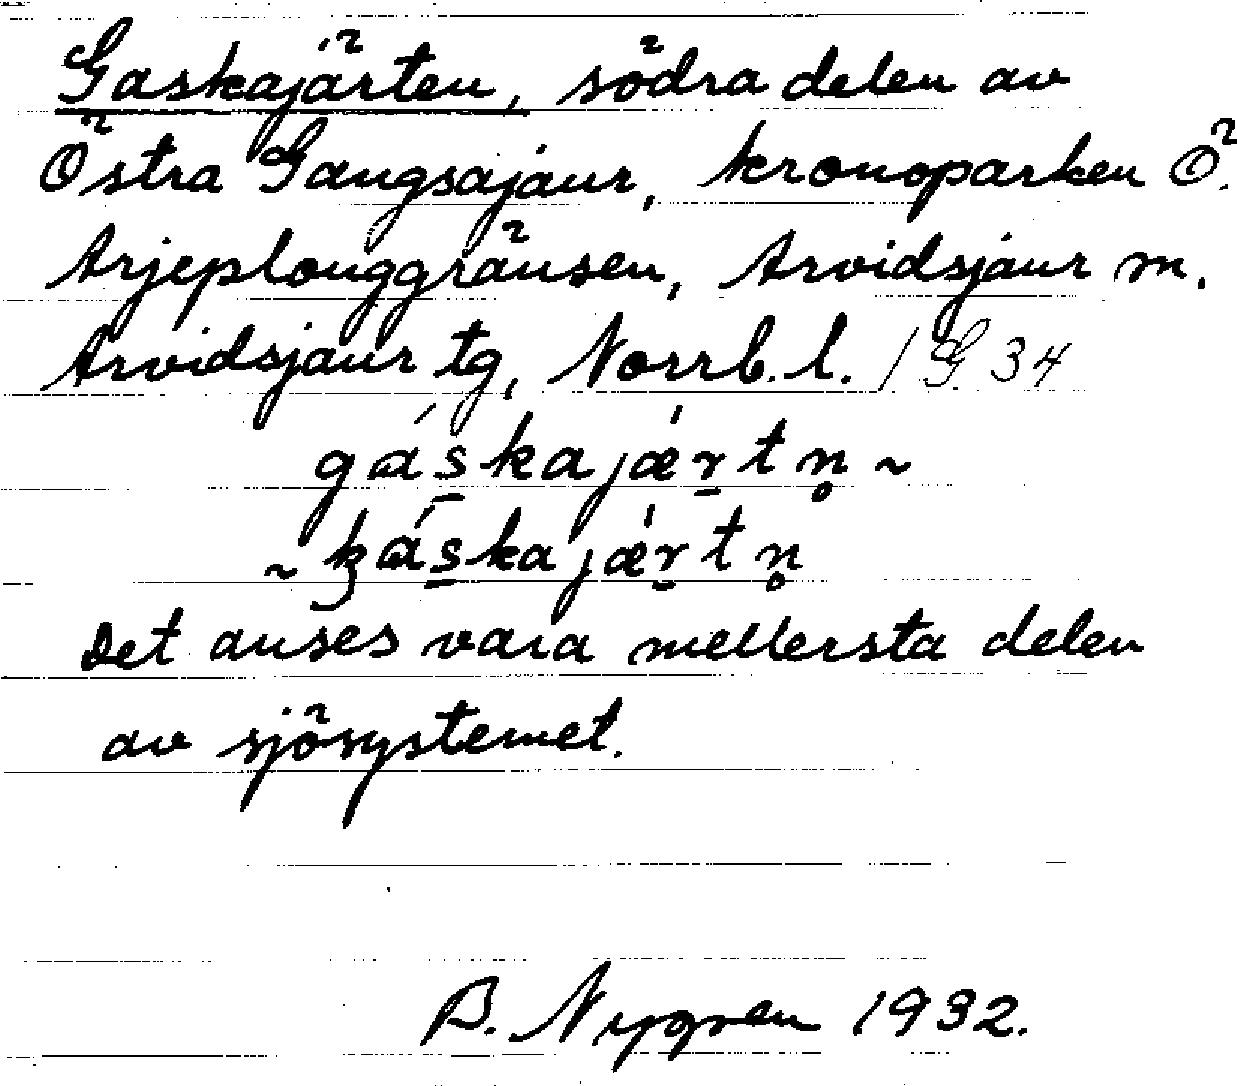 Gaskajärten, södra delen av
Östra Gangsajaur, kronoparken Ö.
Arjeplouggränsen, Arvidsjaur m.
Arvidsjaur tg, Norrb. l. / G 34
gáskajǽrtn̥ ~
~ káskajǽrtn̥
Det anses vara mellersta delen
av sjösystemet.
B. Nygren 1932.